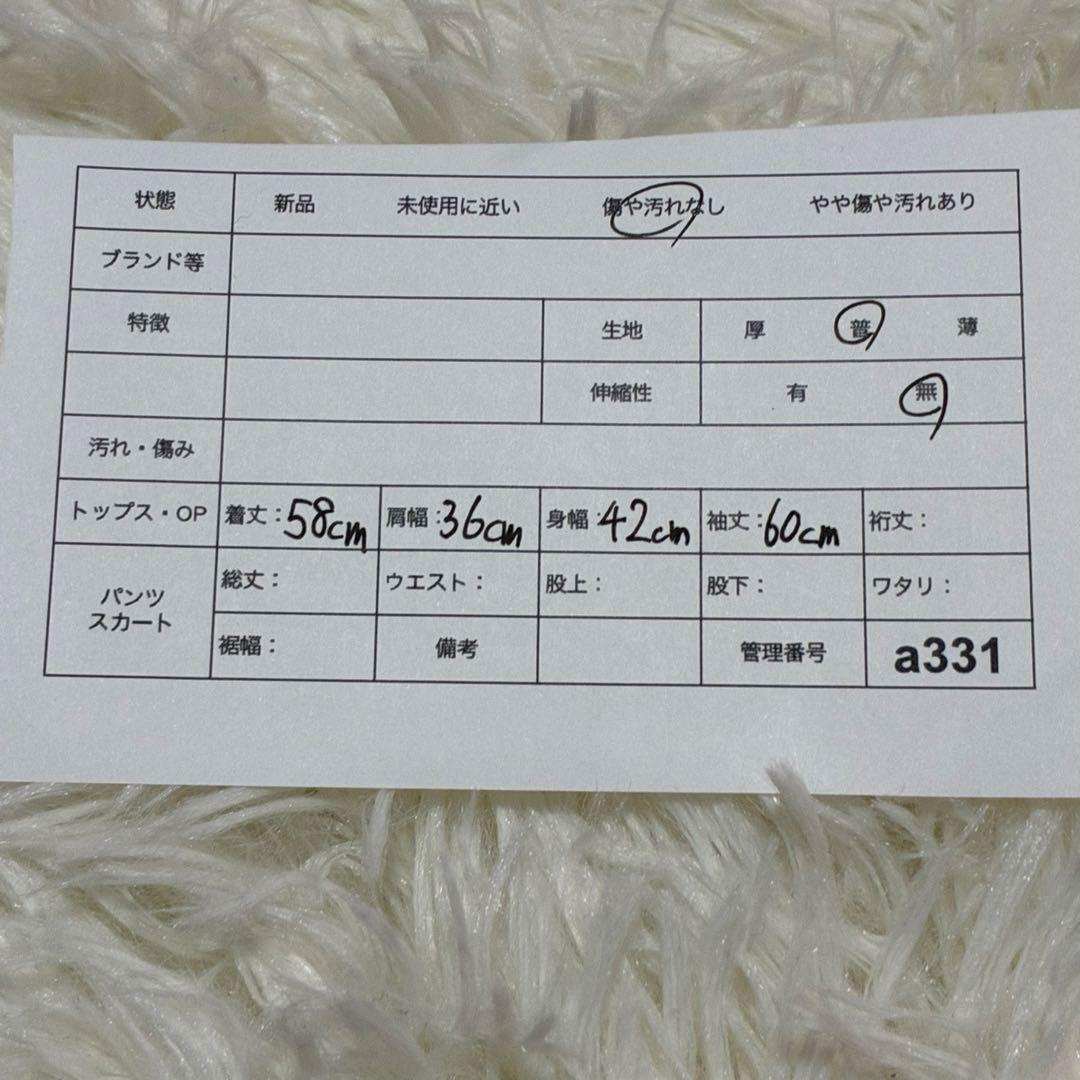 状態 新品 未使用に近い 傷や汚れなし やや傷や汚れあり
ブランド等
特徴 生地 厚 普 薄
伸縮性 有 無
汚れ・傷み
トップス・OP 着丈：58cm 肩幅：36cm 身幅：42cm 袖丈：60cm 裄丈：
パンツ
スカート
総丈： ウエスト： 股上： 股下： ワタリ：
裾幅： 備考 管理番号 a331